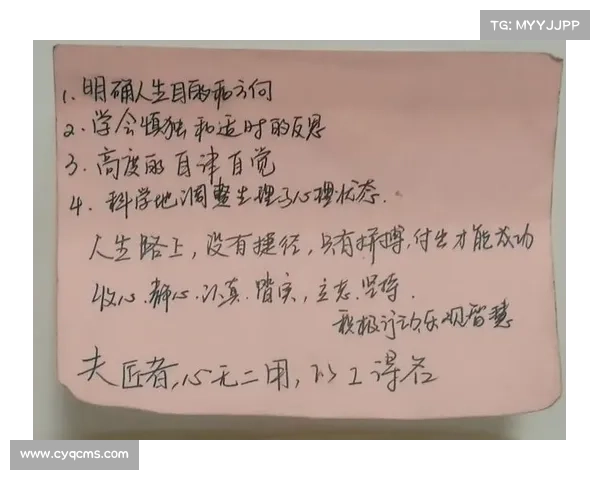 TG: MYYJJPP
1. 明确人生目的和方向
2. 学会慎独和适时的反思
3. 高度的自律自觉
4. 科学地调整生理与心理状态.
人生路上，没有捷径，只有拼搏，付出才能成功
收心.静心.认真.踏实，立志.坚持.
积极行动乐观智慧
夫匠者，心无二用，以工得名
www.cyqcms.com